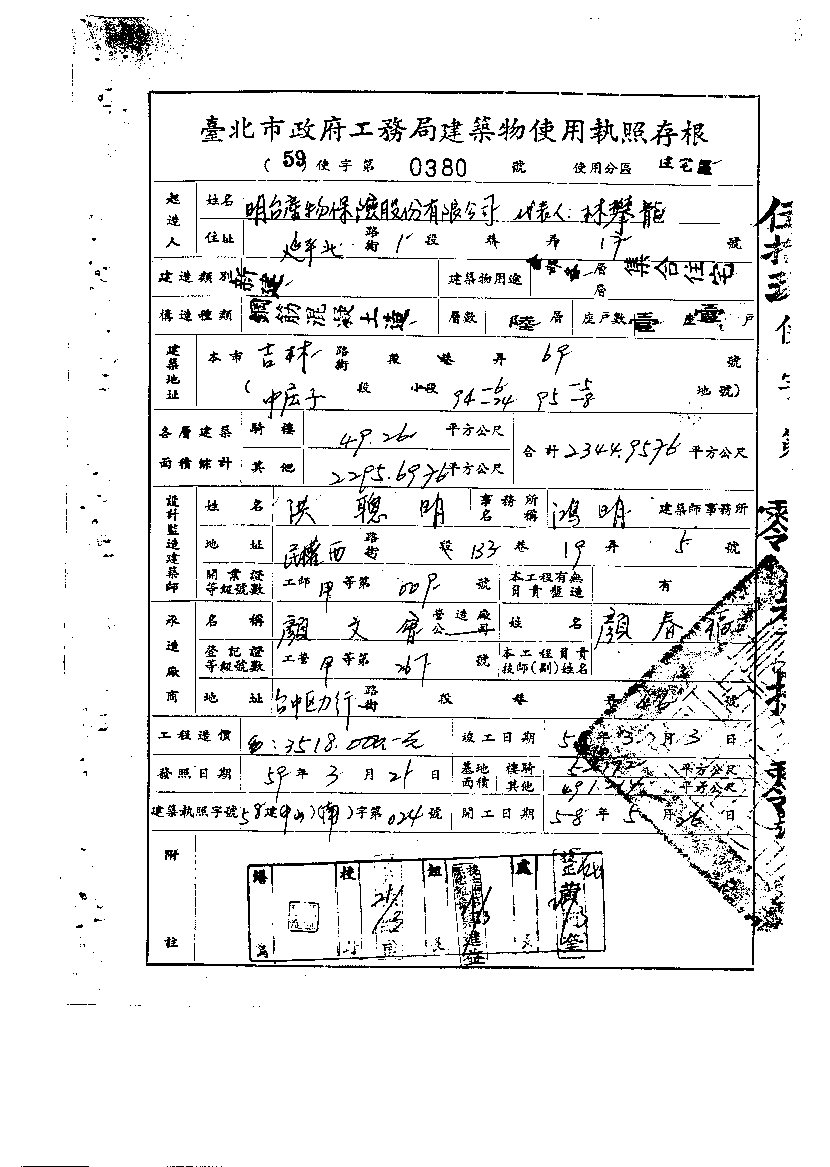 臺北市政府工務局建築物使用執照存根
(59)使字第 0380 號 使用分區 住宅區
起造人 姓名 明台產物保險股份有限公司 代表人:林攀龍
住址 延平北 路街 1 段 巷 弄 號
建造類別 新建 建築物用途 層層 集合住宅
構造種類 鋼筋混凝土造 層數 陸層 座戶數 壹座 壹戶
建築地址 本市 吉林 路街 段 巷 弄 69 號
( 段 小段 94-6 -24 95-5 -8 地號)
各層建築面積綜計 騎樓 49.26 平方公尺 合計 2344.9576 平方公尺
其他 2295.6976 平方公尺
設計監造建築師 姓名 洪聰明 事務所名稱 鴻明 建築師事務所
地址 民權西 路街 段 133 巷 19 弄 5 號
開業證等級號數 工師 甲 等第 009 號 本工程有無負責監造 有
承造廠商 名稱 顏文 營造廠公司 姓名 顏春福
登記證等級號數 工營 甲 等第 267 號 本工程負責技師(副)姓名
地址 台中區力行 路街 段 巷 號
工程造價 3518.000元 竣工日期 年 3 月 3 日
發照日期 59 年 3 月 21 日 基地面積 騎樓 平方公尺
其他 平方公尺
建築執照字號 58 建(中山)( )字第 024 號 開工日期 58 年 5 月 26 日
附註